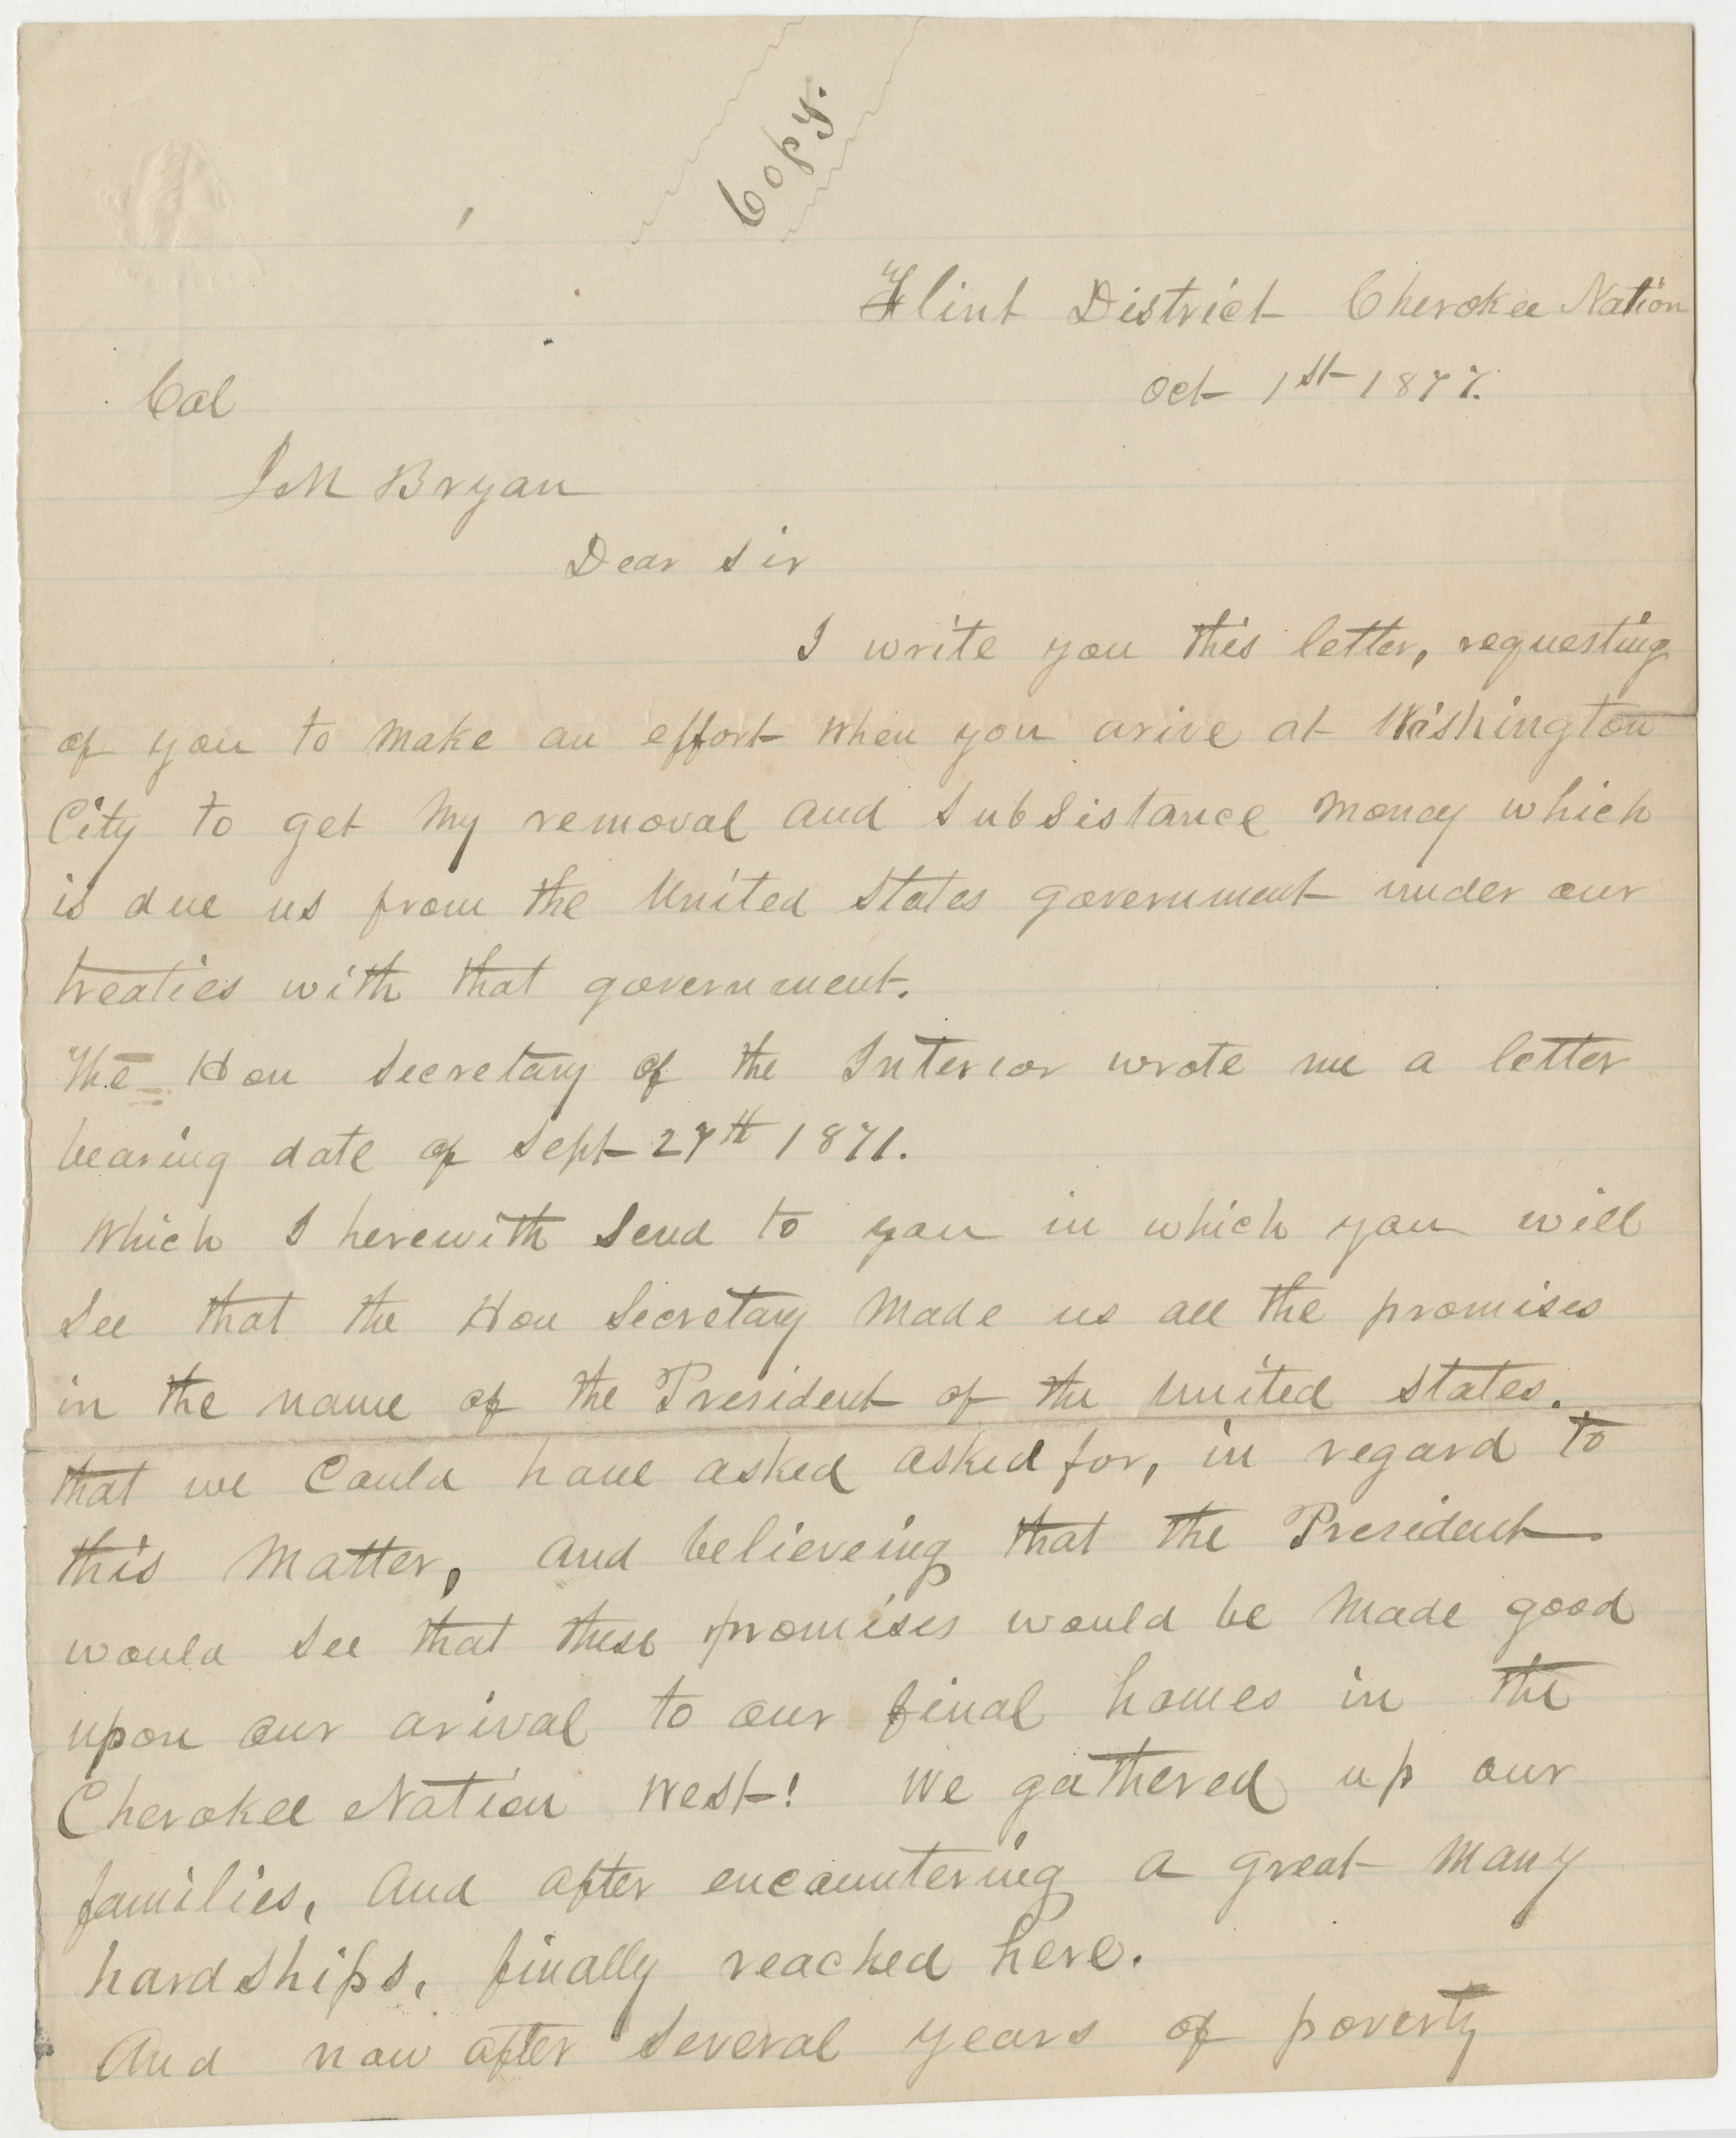 Copy.
Flint District Cherokee Nation
Oct 1st 1877.
Col
J M Bryan
Dear Sir
I write you this letter, requesting
of you to make an effort when you arive at Washington
City to get my removal and subsistance money which
is due us from the United States government under our
treaties with that government.
The Hon Secretary of the Interior wrote me a letter
bearing date of Sept 27th 1871.
Which I herewith send to you in which you will
see that the Hon Secretary made us all the promises
in the name of the President of the United States.
that we could have asked asked for, in regard to
this matter, and believeing that the President
would see that these promises would be made good
upon our arival to our final homes in the
Cherokee Nation West! We gathered up our
families, and after encountering a great many
hardships, finally reached here.
And now after several years of poverty